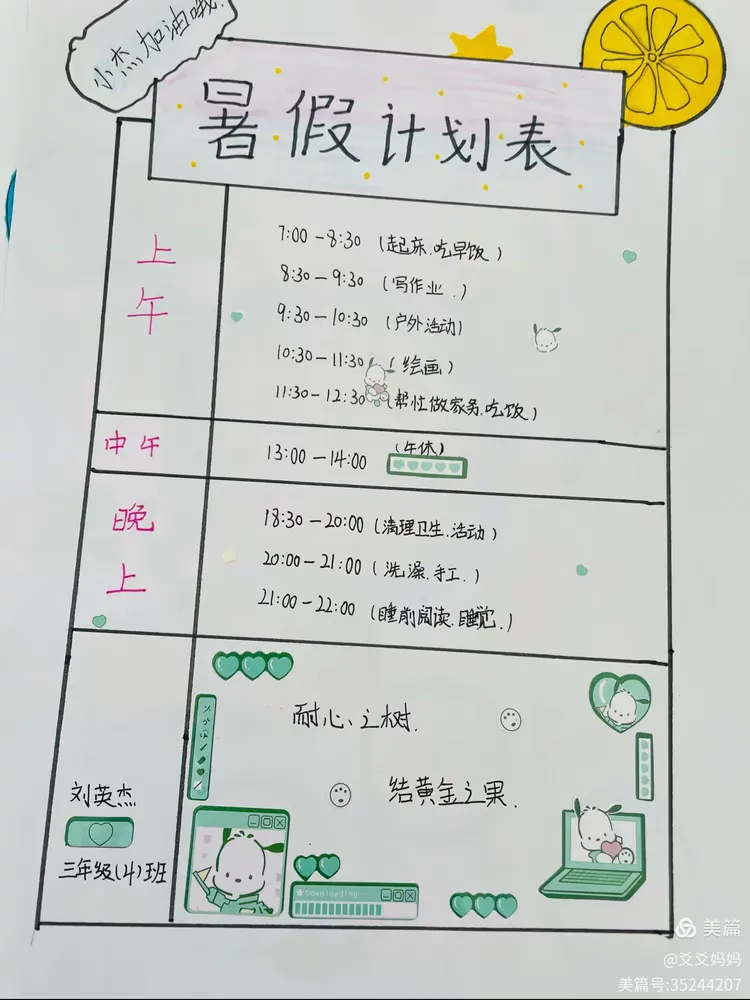 小杰加油哦！
暑假计划表
上午
7:00-8:30（起床.吃早饭）
8:30-9:30（写作业.）
9:30-10:30（户外活动）
10:30-11:30（绘画）
11:30-12:30（帮忙做家务.吃饭）
中午
13:00-14:00（午休）
晚上
18:30-20:00（清理卫生.活动）
20:00-21:00（洗澡.手工.）
21:00-22:00（睡前阅读.睡觉.）
耐心之树.
结黄金之果.
刘英杰
三年级(4)班
Downloading
美篇
@爻爻妈妈
美篇号:35244207